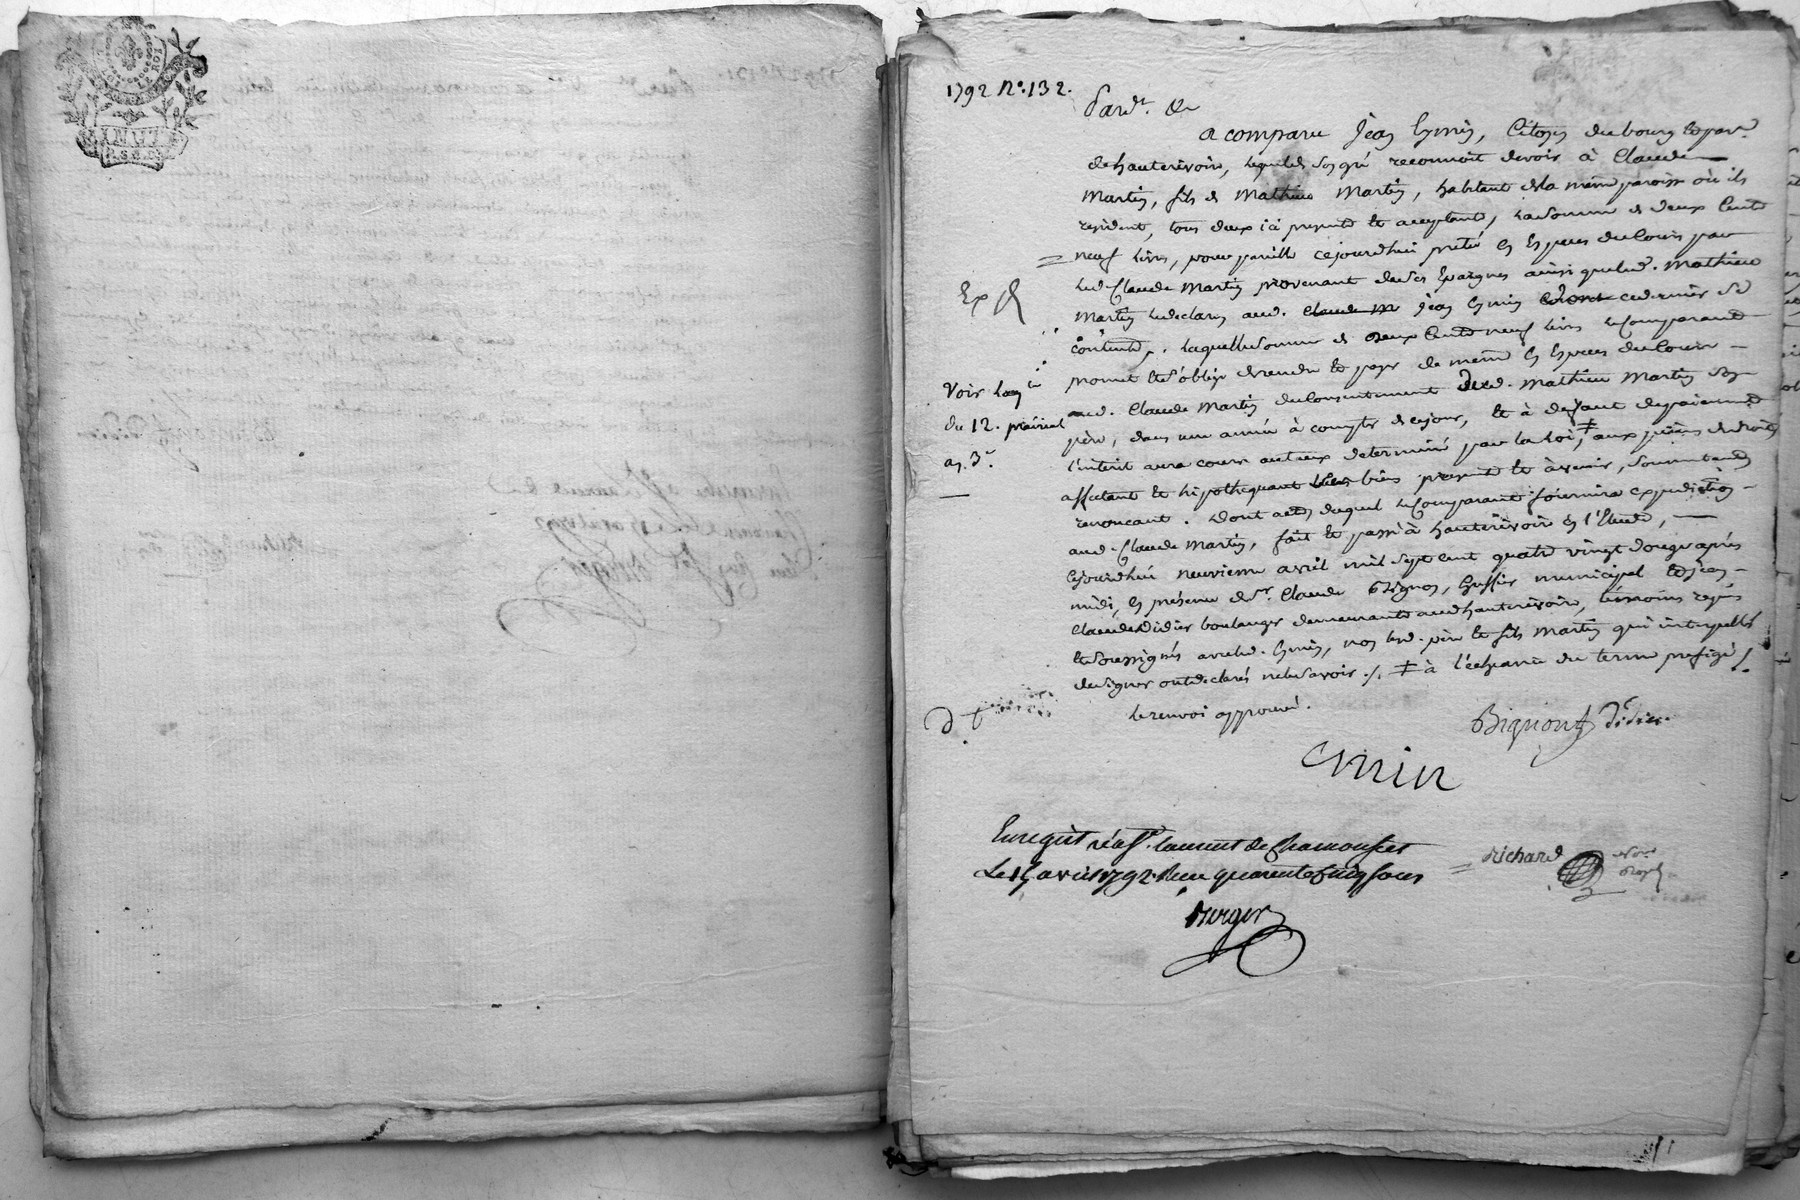 LE ROI
1792 N°. 132.
Pard.t &c
a comparu Jean Esmin, Citoyen du bourg et par.se
de hauterivoire, lequel de son gré reconnoit devoir à Claude
Martin, fils de Mathieu Martin, habitant de la même paroisse où ils
resident, tous deux ici presents et acceptants, la somme de deux Cents
neuf livres, pour pareille cejourdhui prêté en Especes du Cours par
led. Claude Martin provenant de ses Epargnes ainsi que led. Mathieu
Martin le declare aud. Claude M Jean Esmin ce dernier
contents. laquelle somme de deux Cents neuf livres le Comparant
promet et s'oblige de rendre et payer de même en Especes du Cours
aud. Claude Martin du Consentement dud. Mathieu Martin son
père, dans une année à compter de cejour, et à defaut de paiement
l'intérêt aura cours au taux determiné par la loi, ‡ aux peines de droit
affectant et hipothequant biens presents et à venir, soumettant
renoncant. Dont acte duquel le Comparant fournira expedition
aud. Claude Martin, fait et passé à hauterivoire en l'Etude,
cejourdhui neuvieme avril mil sept cent quatre vingt douze après
midi, en présence de S.r Claude Bignon, Greffier municipal et Jean
Claude Didier boulanger demeurants aud. hauterivoire, témoins requis
et soussignés avec led. Esmin, non lesd. père et fils Martin qui interpellés
de signer ont declarés ne le savoir ./. ‡ à l'échéance du terme prefigé /.
le renvoi approuvé.
Ex
Voir la
du 12. prairial
an. 3.e
d t
Bignon Didier
Emin
Enregistré à S.t Laurent de Chamousset
Le 15 avril 1792. Reçu quarente Cinq sous
Berger
Richard